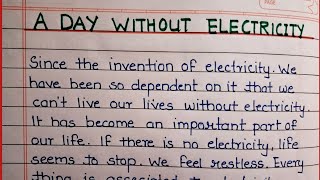 A DAY WITHOUT ELECTRICITY
Since the invention of electricity. We
have been so dependent on it that we
can't live our lives without electricity.
It has become an important part of
our life. If there is no electricity, life
seems to stop. We feel restless. Every
thing is associated